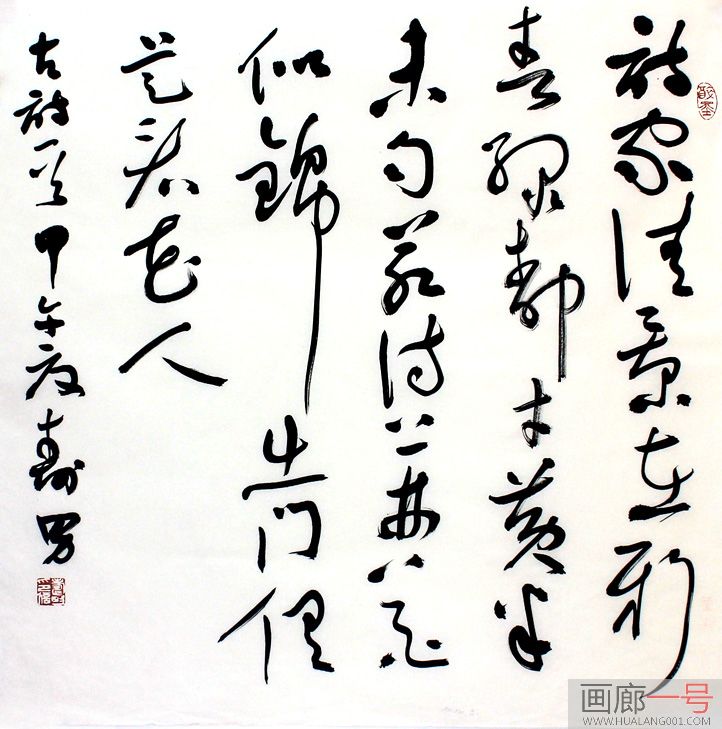 诗家清景在新
春绿柳才黄半
未匀若待上林花
似锦出门俱
是看花人
古诗一首甲午夏寿男
画廊一号
WWW.HUALANG001.COM